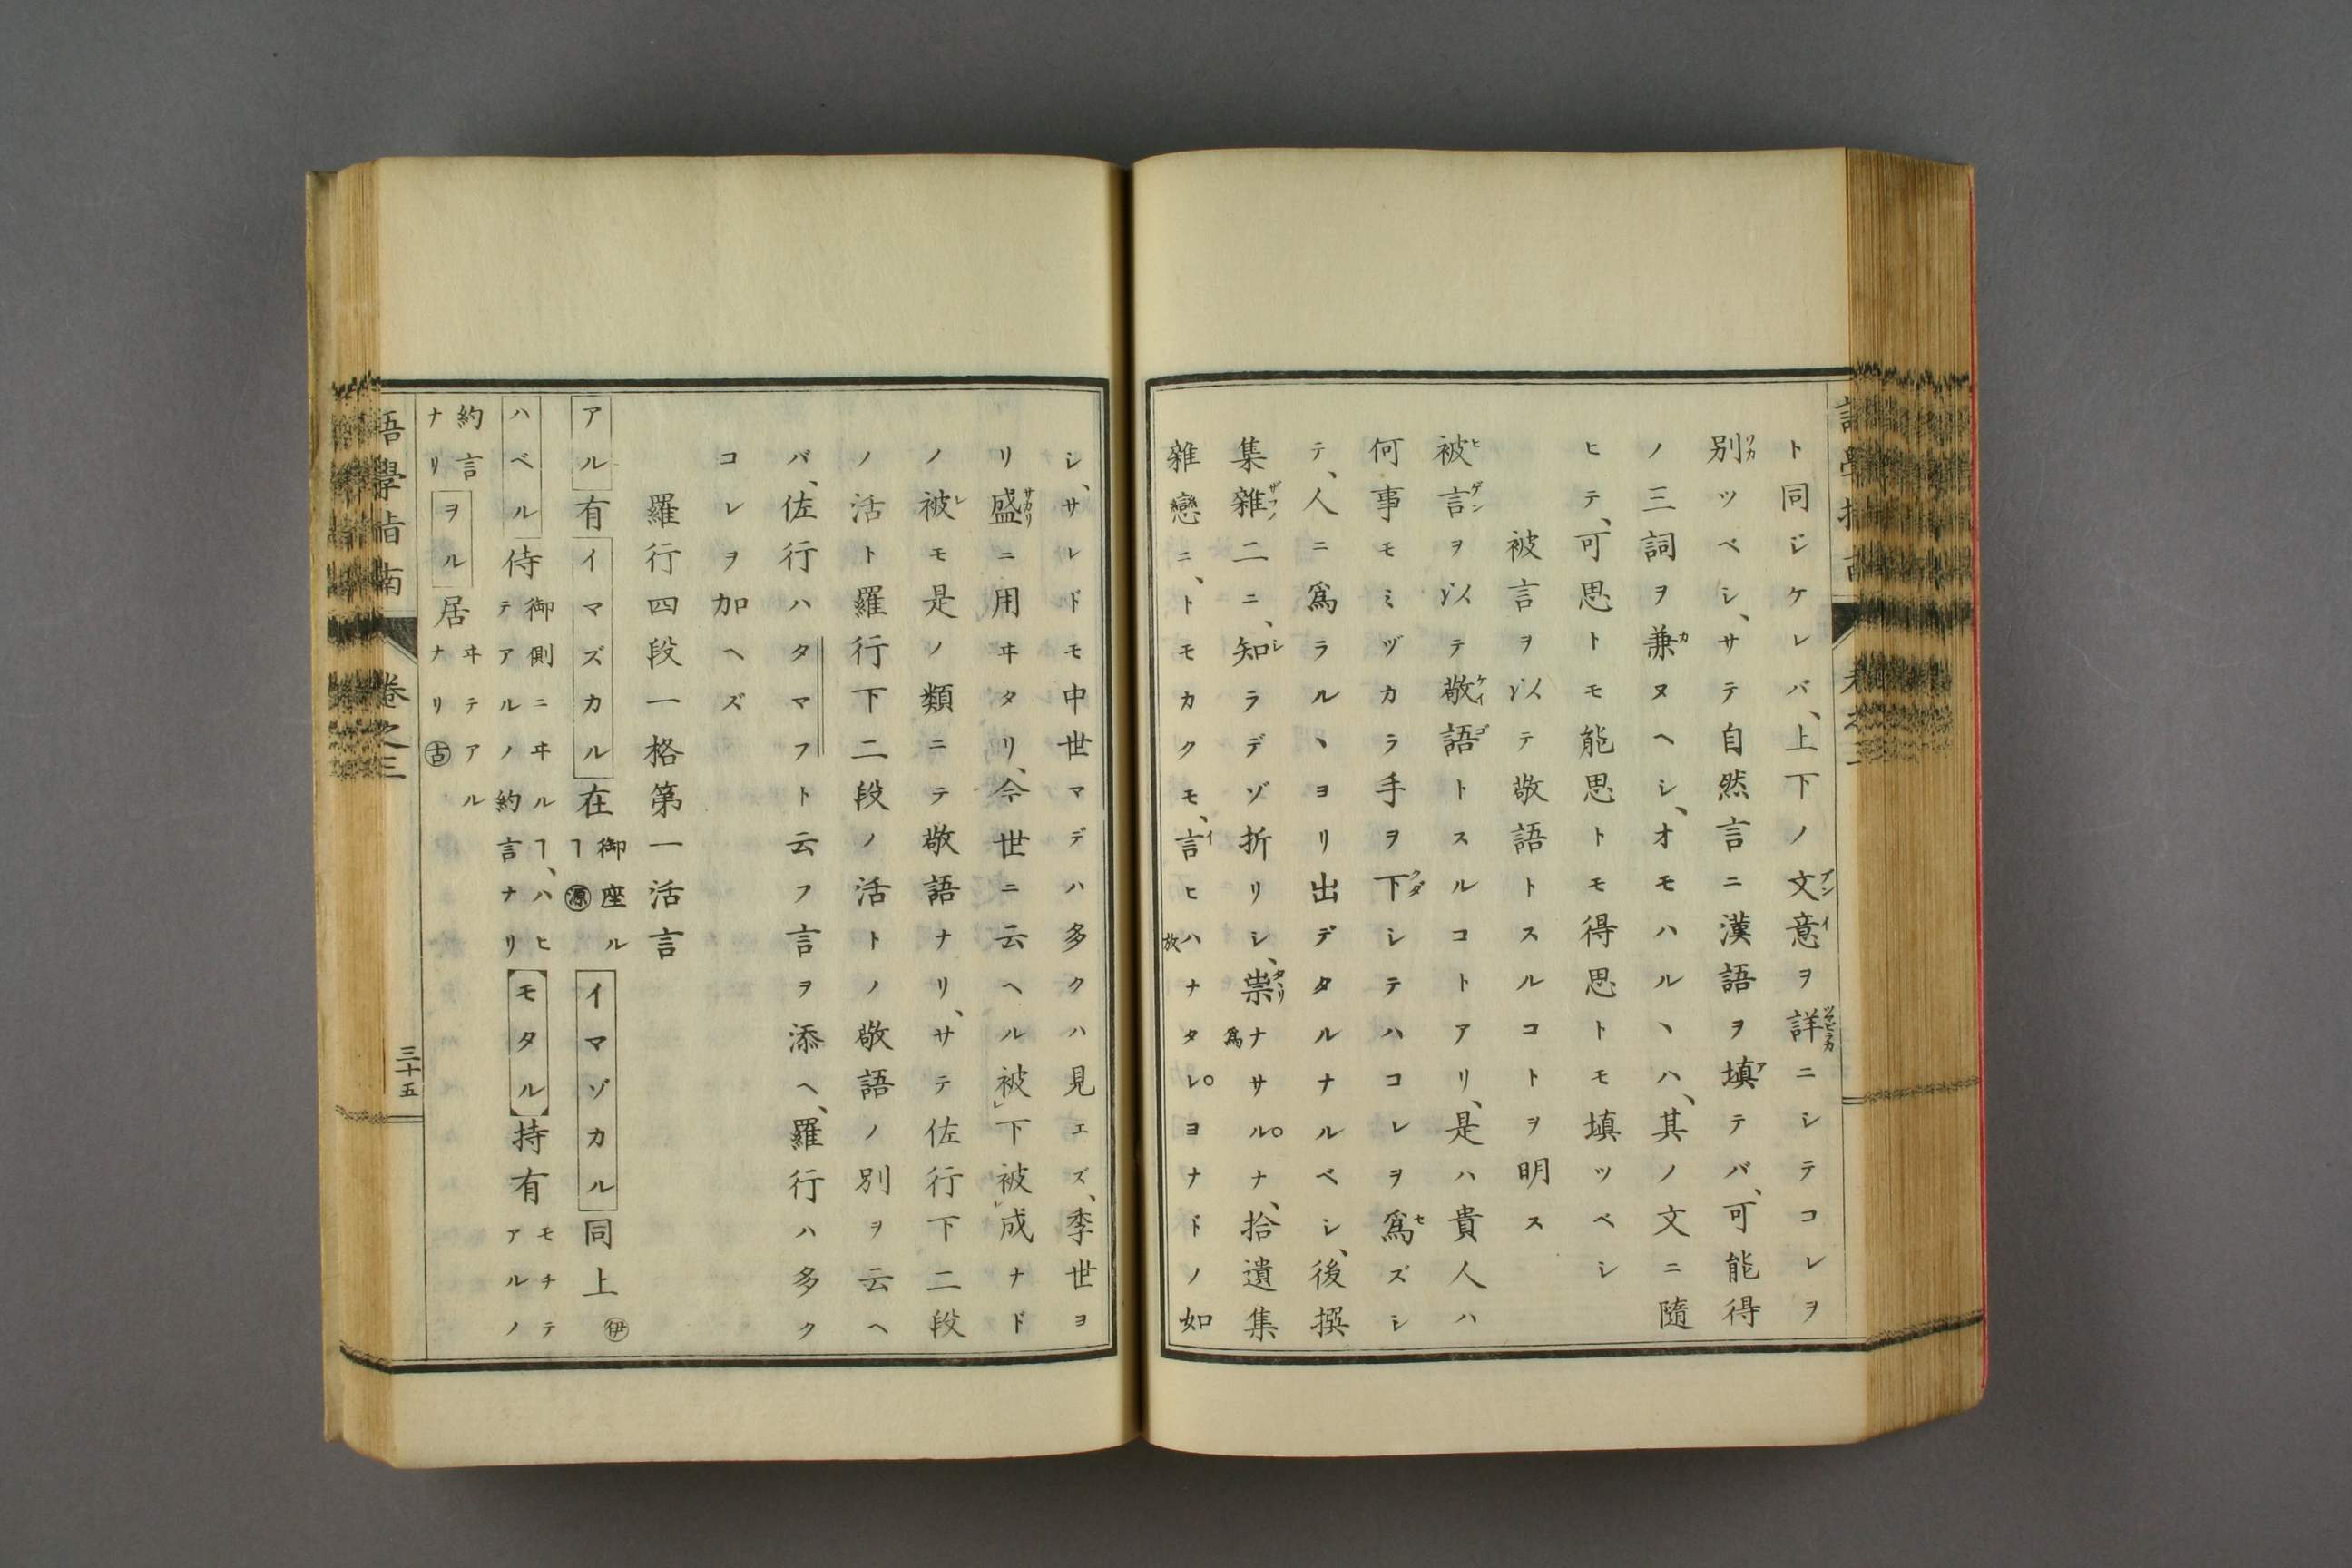 ト同ジケレバ、上下ノ文意ヲ詳ニシテコレヲ
別ツベシ、サテ自然言ニ漢語ヲ填テバ、可能得
ノ三詞ヲ兼ヌヘシ、オモハルヽハ、其ノ文ニ隨
ヒテ、可思トモ能思トモ得思トモ填ツベシ
被言ヲ以テ敬語トスルコトヲ明ス
被言ヲ以テ敬語トスルコトアリ、是ハ貴人ハ
何事モミヅカラ手ヲ下シテハコレヲ爲ズシ
テ、人ニ爲ラルヽヨリ出デタルナルベシ、後撰
集雜二ニ、知ラデゾ折リシ、祟ナサルナ、拾遺集
爲
雜戀ニ、トモカクモ、言ヒハナタレヨナドノ如
放
シ、サレドモ中世マデハ多クハ見エズ、季世ヨ
リ盛ニ用ヰタリ、今世ニ云ヘル被下被成ナド
ノ被モ是ノ類ニテ敬語ナリ、サテ佐行下二段
ノ活ト羅行下二段ノ活トノ敬語ノ別ヲ云ヘ
バ、佐行ハタマフト云フ言ヲ添ヘ、羅行ハ多ク
コレヲ加ヘズ
羅行四段一格第一活言
アル有イマズカル在御座ルヿ源イマゾカル同上伊
ハベル侍御側ニヰルヿ、ハヒテアルノ約言ナリモタル持有モチテアルノ
約言ナリヲル居ヰテアルナリ古
語學指南 卷之三 三十五